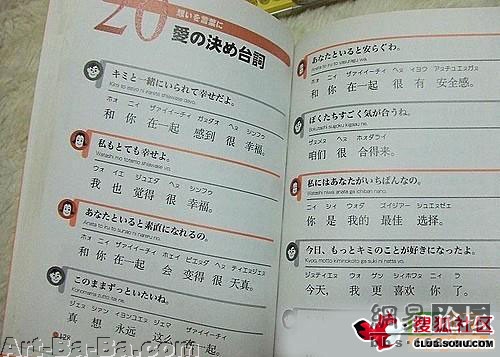 20
想いを言葉に
愛の決め台詞
キミと一緒にいられて幸せだよ。
Kimi to issyo ni irarete shiawase dayo.
ホォ ニィ ヅァイイーチイ ガヌダオ ヘヌ シンフウ
和 你 在一起 感到 很 幸福。
私もとても幸せよ。
Watashi mo totemo shiawase yo.
ウォ イエ ジュエダ ヘヌ シンフウ
我 也 觉得 很 幸福。
あなたといると素直になれるの。
Anata to iru to sunao ni nareru no.
ホォ ニイ ヅァイイーチイ ホェイ ビエッダ ヘヌ ティエヌジェヌ
和 你 在一起 会 变得 很 天真。
このままずっといたいね。
Konomama zutto itai ne.
ジェヌ シアン イヨンユエヌ ジェマ ヅァイイーチイ
真 想 永远 这么
128
あなたといると安らぐわ。
Anata to iru to yasuragu wa.
ホォ ニイ ヅァイイーチイ ヘヌ イヨウ アヌチュエヌガヌ
和 你 在一起 很 有 安全感。
ぼくたちすごく気が合うね。
Bokutachi sugoku kigaau ne.
ヅァヌメヌ ヘヌ ホォダライ
咱们 很 合得来。
私にはあなたがいちばんなの。
Watashi niwa anata ga ichiban nano.
ニイ シイ ウォダ ズイジアー シュエヌゼェ
你 是 我的 最佳 选择。
今日、もっとキミのことが好きになったよ。
Kyoo, motto kiminokoto ga suki ni natta yo.
ジヌティエヌ ウォ ゲン シイホワヌ ニイ ラ
今天， 我 更 喜欢 你 了。
Art-Ba-Ba.com
搜狐社区
CLUB.SOHU.COM